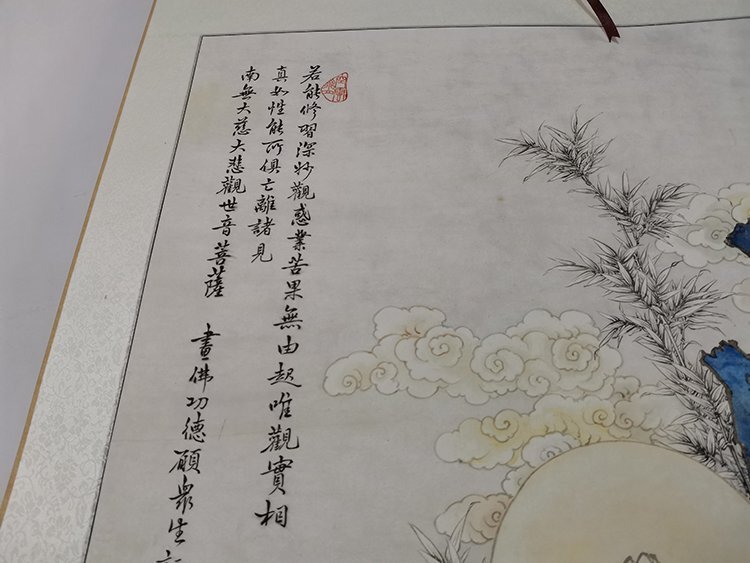 若能修習深妙觀惑業苦果無由起唯觀實相
真如性能所俱亡離諸見
南無大慈大悲觀世音菩薩
畫佛功德願眾生